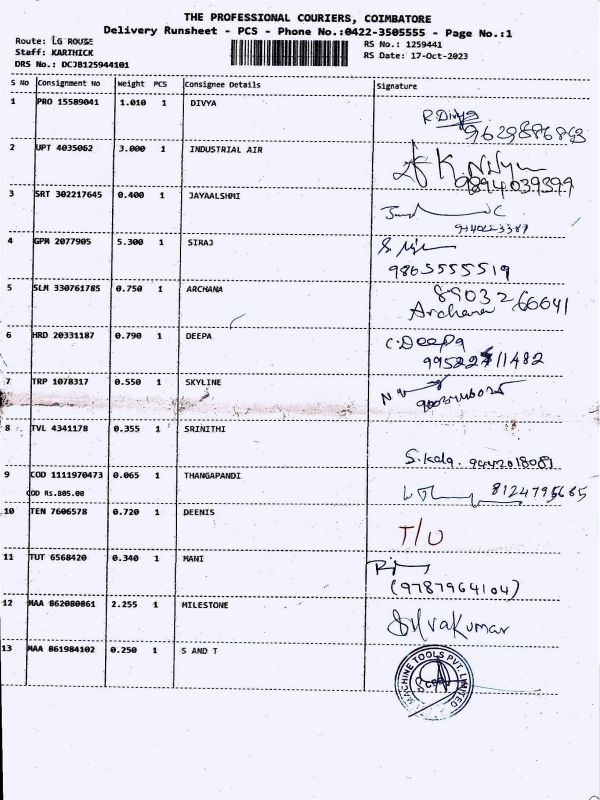 THE PROFESSIONAL COURIERS, COIMBATORE
Delivery Runsheet - PCS - Phone No.:0422-3505555 - Page No.:1
Route: LG ROUZE
Staff: KARTHICK
DRS No.: DCJB125944101
RS No.: 1259441
RS Date: 17-Oct-2023
S No Consignment No Weight PCS Consignee Details Signature
1 PRO 15589041 1.010 1 DIVYA R Divya
9629886893
2 UPT 4035062 3.000 1 INDUSTRIAL AIR
9894039399
3 SRT 302217645 0.400 1 JAYAALSHMI
4 GPM 2077905 5.300 1 SIRAJ
9865555519
5 SLM 330761785 0.750 1 ARCHANA 89032 66641
Archana
6 HRD 20331187 0.790 1 DEEPA C.Deepa
7 TRP 1078317 0.550 1 SKYLINE
8 TVL 4341178 0.355 1 SRINITHI
S.kala.
9 COD 1111970473 0.065 1 THANGAPANDI 8124795685
COD Rs.805.00
10 TEN 7606578 0.720 1 DEENIS T/U
11 TUT 6568420 0.340 1 MANI
(9787964104)
12 MAA 862080861 2.255 1 MILESTONE
13 MAA 861984102 0.250 1 S AND T
MACHINE TOOLS PVT. LIMITED